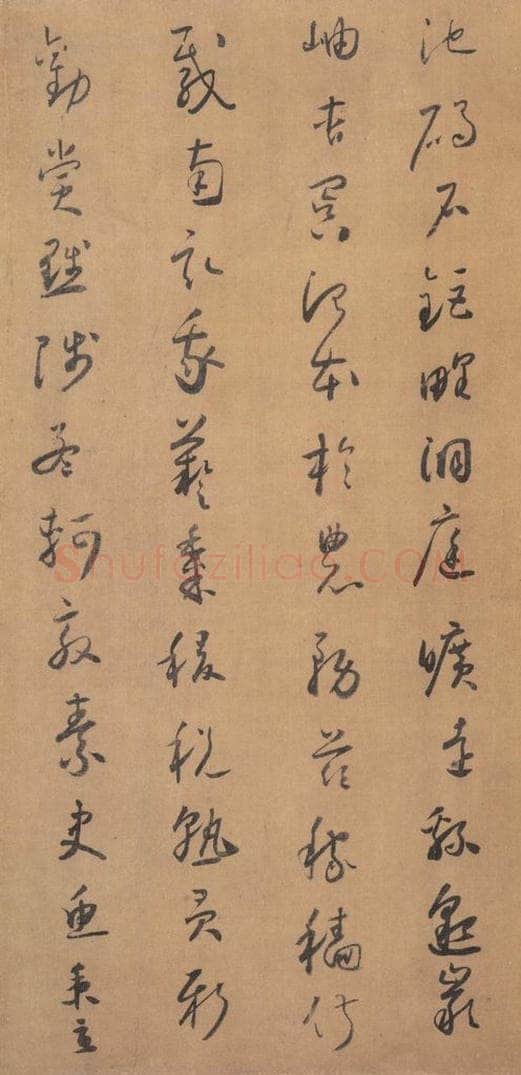 池碣石鉅野洞庭曠遠綿邈巖
岫杳冥治本於農務茲稼穡俶
載南畝我藝黍稷稅熟貢新
勸賞黜陟孟軻敦素史魚秉直
Shufaziliao.COM